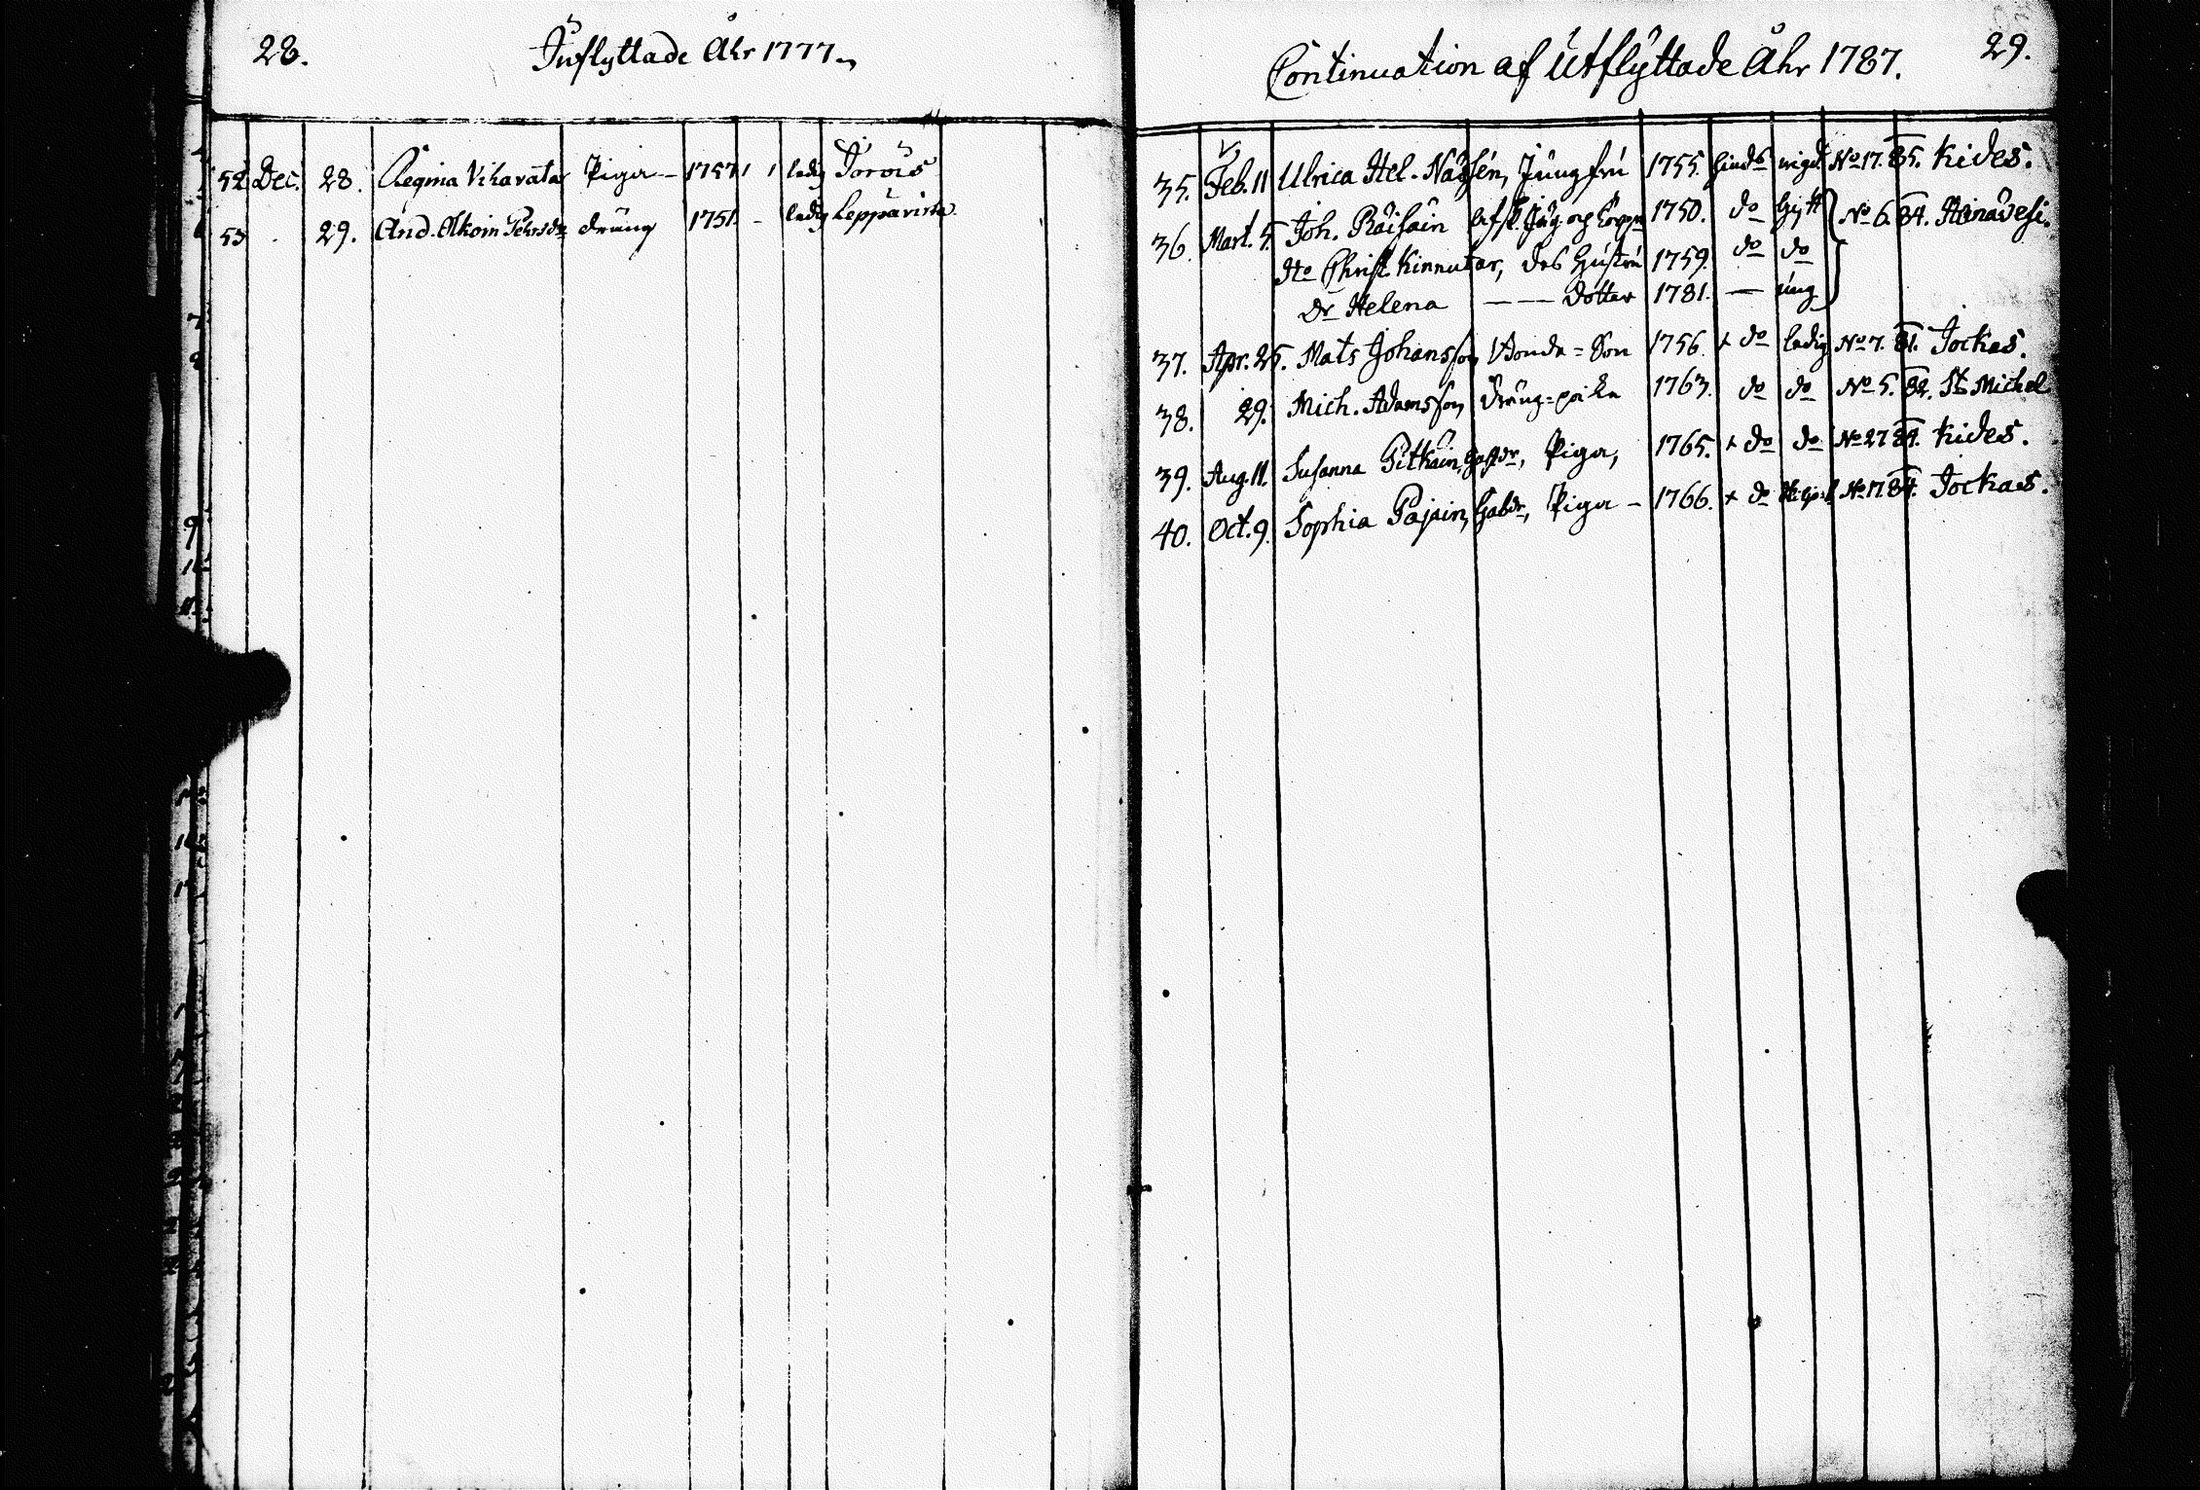 28. Inflyttade Åhr 1777.
52 Dec. 28. Regina Viharatar Piga - 1757. 1 ledig Jorois
53 . 29. And. Olkoin Pehrsdr dräng 1751. - ledig Leppävirta.
Continuation af Utflyttade Åhr 1787. 29.
35. Feb. 11 Ulrica Hel. Jungfru 1755. No 17. 85. Kides.
36. Mart. 5. Joh. Räisäin 1750. do Gift No 6. 84. Heinävesi.
Christ Kinnutar, des Hustru 1759. do do
Dr Helena — — dotter 1781. — ung
37. Apr. 25. Mats Johansson Bonde = Son 1756. + do ledig No 7. 81. Jockas.
38. 29. Mich. Adamsson dräng = poike 1763. do do No 5. 82. St Michel
39. Aug. 11. Susanna Pitkäin, Piga, 1765. + do do No 27 84. Kides.
40. Oct. 9. Sophia Pajain, Gabdr, Piga - 1766. + do No 17 84. Jockas.